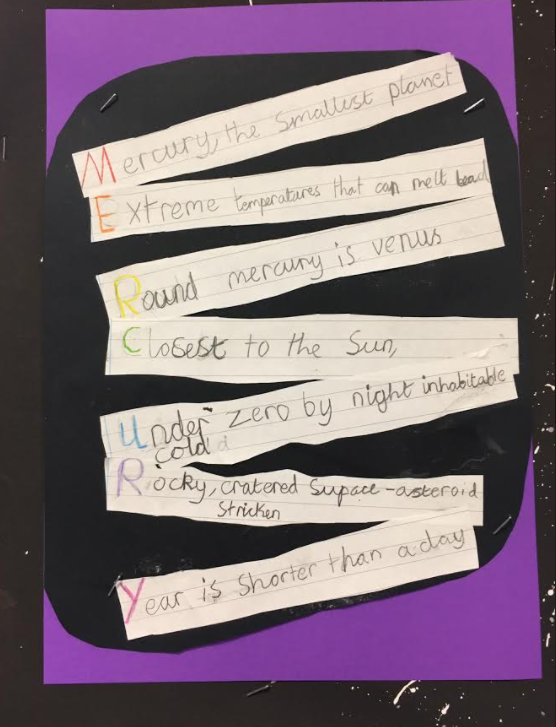 Mercury, the smallest planet
Extreme temperatures that can melt lead
Round mercury is venus
Closest to the Sun,
Under zero by night inhabitable
cold
Rocky, cratered Supace - asteroid
Stricken
Year is Shorter than a day